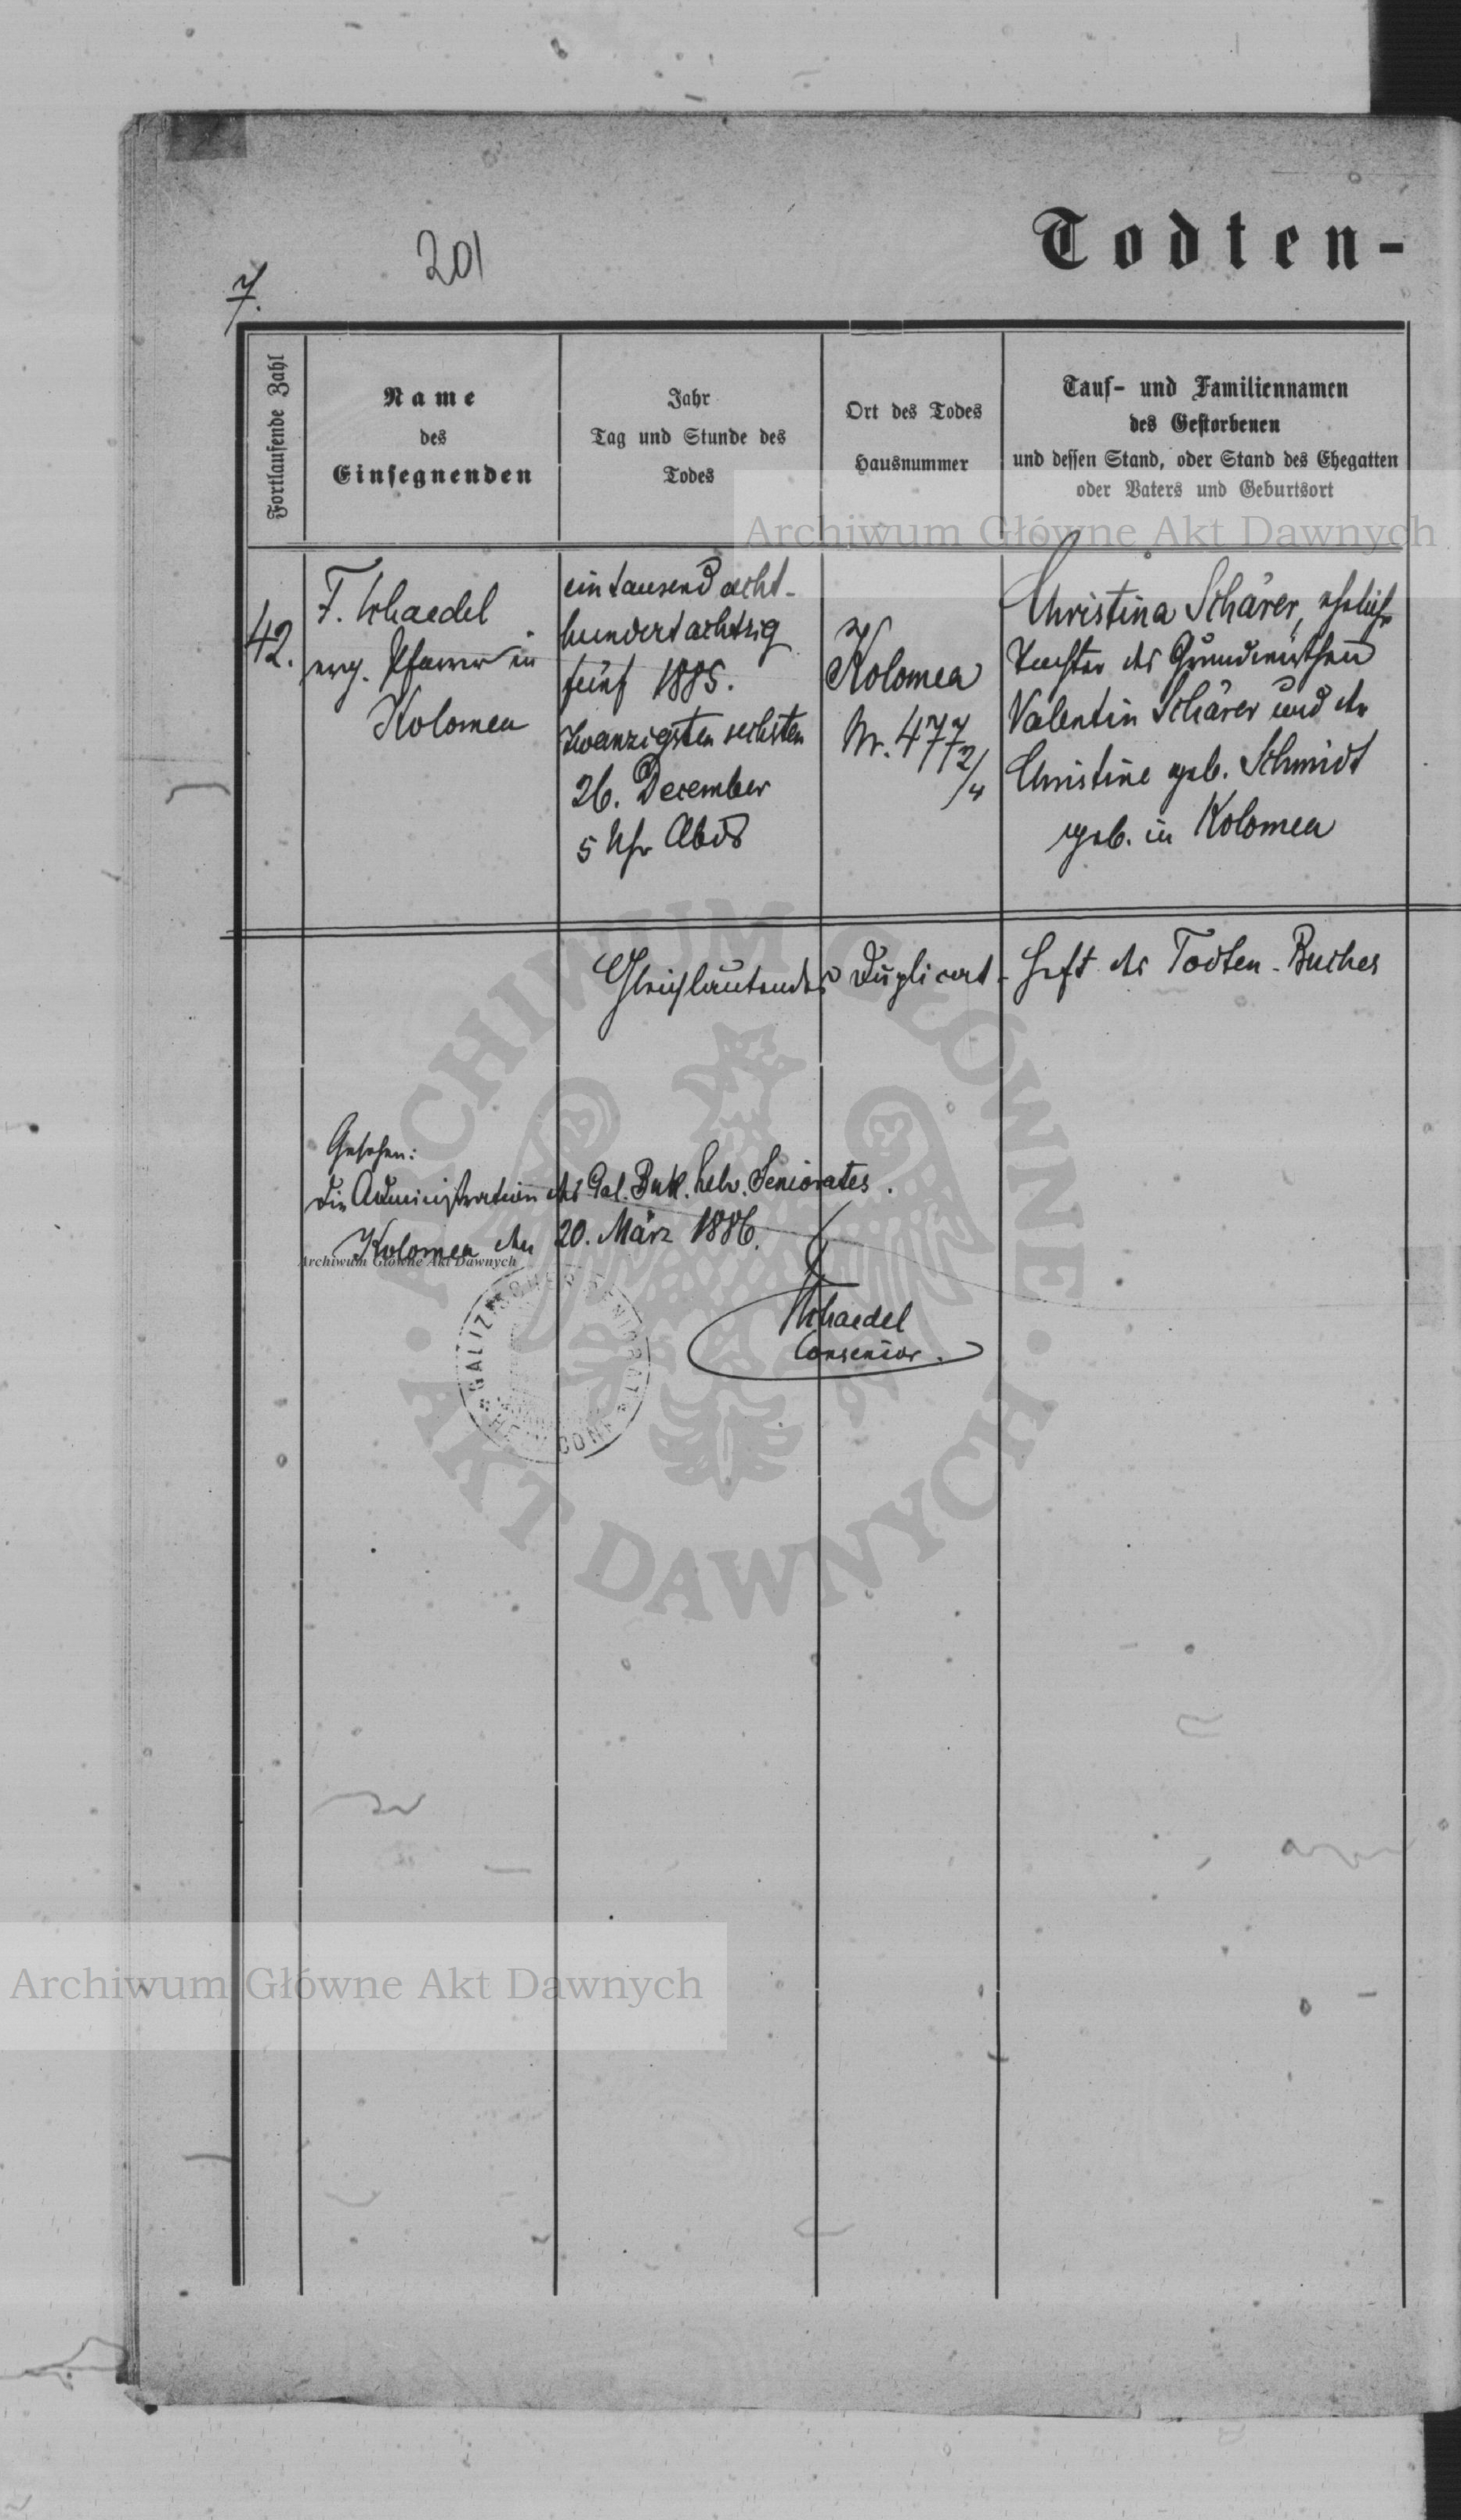 201
7.
Todten-
Fortlaufende Zahl
Name
des
Einsegnenden
Jahr
Tag und Stunde des
Todes
Ort des Todes
Hausnummer
Tauf- und Familiennamen
des Gestorbenen
und dessen Stand, oder Stand des Ehegatten
oder Vaters und Geburtsort
Archiwum Główne Akt Dawnych
42.
F. Schaedel
evg. Pfarrer in
Kolomea
eintausend acht-
hundert achtzig
fünf 1885.
zwanzigsten sechsten
26. December
5 Uhr Abds
Kolomea
Nr. 477
2/4
Christina Schärer, ehelich
Tochter des Grundwirthen
Valentin Schärer und der
Christine geb. Schmidt
geb. in Kolomea
Gleichlautendes Duplicat-Heft des Todten-Buches
Gesehen:
Die Administration des Gal. Buk. helv. Seniorates.
Kolomea den 20. März 1886.
Archiwum Główne Akt Dawnych
Schaedel
Consenior.
GALIZISCHES SENIORAT HELV. CONF.
ARCHIWUM GŁÓWNE AKT DAWNYCH
Archiwum Główne Akt Dawnych